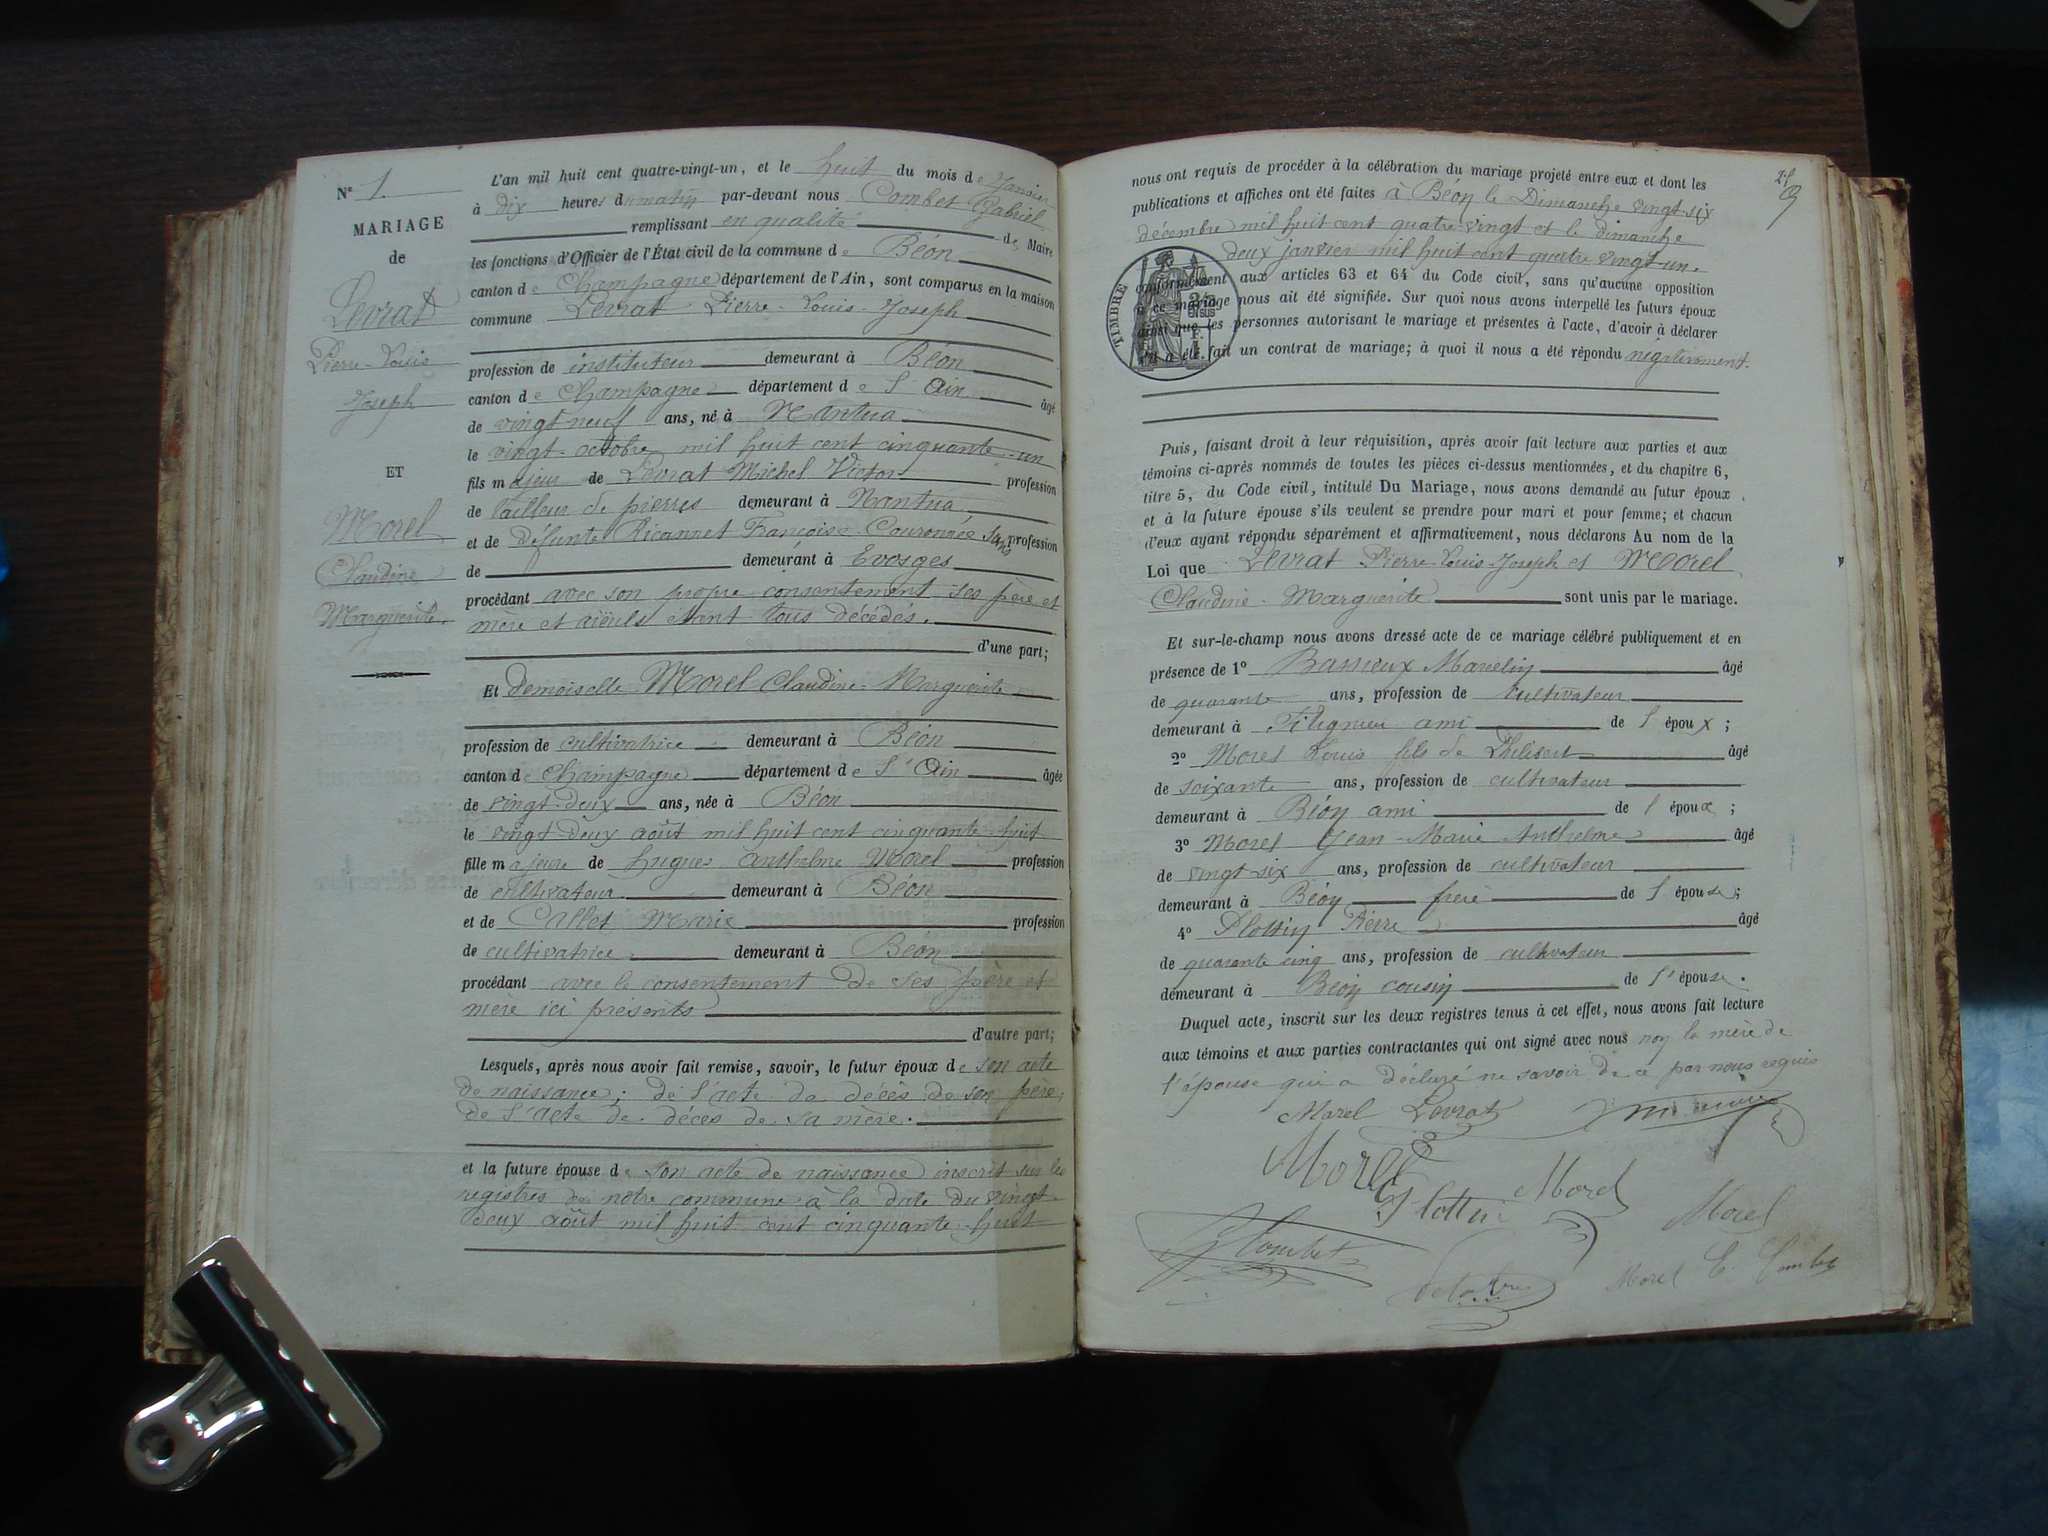 N° 1.
MARIAGE
de
Levrat
Pierre-Louis
Joseph
ET
Morel
Claudine
Marguerite.
L'an mil huit cent quatre-vingt-un, et le huit du mois de Janvier
à dix heures du matin par-devant nous Combet Gabriel
remplissant en qualité de Maire
les fonctions d'Officier de l'État civil de la commune de Béon
canton de Champagne département de l'Ain, sont comparus en la maison
commune Levrat Pierre-Louis-Joseph
profession de instituteur demeurant à Béon
canton de Champagne département de l'Ain âgé
de vingt neuf ans, né à Nantua
le vingt octobre mil huit cent cinquante-un
fils majeur de Levrat Michel Victor profession
de tailleur de pierres demeurant à Nantua
et de défunte Ricannet Françoise Couronnée sans profession
de demeurant à Evosges
procédant avec son propre consentement ses père et
mère et aïeuls étant tous décédés.
d'une part;
Et demoiselle Morel Claudine-Marguerite
profession de cultivatrice demeurant à Béon
canton de Champagne département de l'Ain âgée
de vingt-deux ans, née à Béon
le vingt deux août mil huit cent cinquante-huit
fille majeure de Hugues Anthelme Morel profession
de cultivateur demeurant à Béon
et de Callet Marie profession
de cultivatrice demeurant à Béon
procédant avec le consentement de ses père et
mère ici présents
d'autre part;
Lesquels, après nous avoir fait remise, savoir, le futur époux de son acte
de naissance; de l'acte de décès de son père;
de l'acte de décès de sa mère.
et la future épouse de son acte de naissance inscrit sur les
registres de notre commune à la date du vingt-
deux août mil huit cent cinquante-huit
nous ont requis de procéder à la célébration du mariage projeté entre eux et dont les
publications et affiches ont été faites à Béon le Dimanche vingt-six
décembre mil huit cent quatre-vingt et le dimanche
deux janvier mil huit cent quatre vingt-un.
TIMBRE
conformément aux articles 63 et 64 du Code civil, sans qu'aucune opposition
à ce mariage nous ait été signifiée. Sur quoi nous avons interpellé les futurs époux
ainsi que les personnes autorisant le mariage et présentes à l'acte, d'avoir à déclarer
s'il a été fait un contrat de mariage; à quoi il nous a été répondu négativement.
Puis, faisant droit à leur réquisition, après avoir fait lecture aux parties et aux
témoins ci-après nommés de toutes les pièces ci-dessus mentionnées, et du chapitre 6,
titre 5, du Code civil, intitulé Du Mariage, nous avons demandé au futur époux
et à la future épouse s'ils veulent se prendre pour mari et pour femme; et chacun
d'eux ayant répondu séparément et affirmativement, nous déclarons Au nom de la
Loi que Levrat Pierre-Louis-Joseph et Morel
Claudine-Marguerite sont unis par le mariage.
Et sur-le-champ nous avons dressé acte de ce mariage célébré publiquement et en
présence de 1° Bassieux Marcelin âgé
de quarante ans, profession de cultivateur
demeurant à Fitignieu ami de l'époux;
2° Morel Louis fils de Philibert âgé
de soixante ans, profession de cultivateur
demeurant à Béon ami de l'époux;
3° Morel Jean-Marie Anthelme âgé
de vingt six ans, profession de cultivateur
demeurant à Béon frère de l'épouse;
4° Plottin Pierre âgé
de quarante cinq ans, profession de cultivateur
demeurant à Béon cousin de l'épouse.
Duquel acte, inscrit sur les deux registres tenus à cet effet, nous avons fait lecture
aux témoins et aux parties contractantes qui ont signé avec nous non la mère de
l'épouse qui a déclaré ne savoir de ce par nous requis
Morel Levrat
Morel
Plottin Morel Morel
Combet
Morel C. Combet